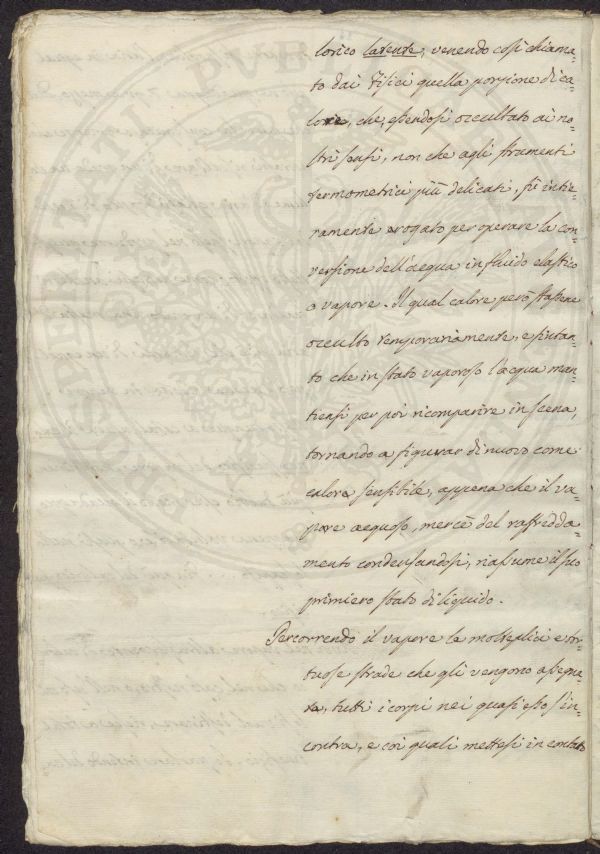 lorico latente, venendo così chiama=
to dai Fisici quella porzione di ca=
lore, che, essendosi occultato ai no=
stri sensi, non che agli strumenti
termometrici più delicati, fù intie=
ramente erogato per operare la con=
versione dell'acqua in fluido elastico
o vapore. Il qual calore però stassene
occulto temporariamente, e sintan=
to che in stato vaporoso l'acqua man=
tiensi per poi ricomparire in scena,
tornando a figurar di nuovo come
calore sensibile, appena che il va=
pore acquoso, mercè del raffredda=
mento condensandosi, riassume il suo
primiero stato di liquido.
Percorrendo il vapore le molteplici e tor=
tuose strade che gli vengono assegna=
te, tutti i corpi nei quali esso s'in=
contra, e coi quali mettesi in contatto